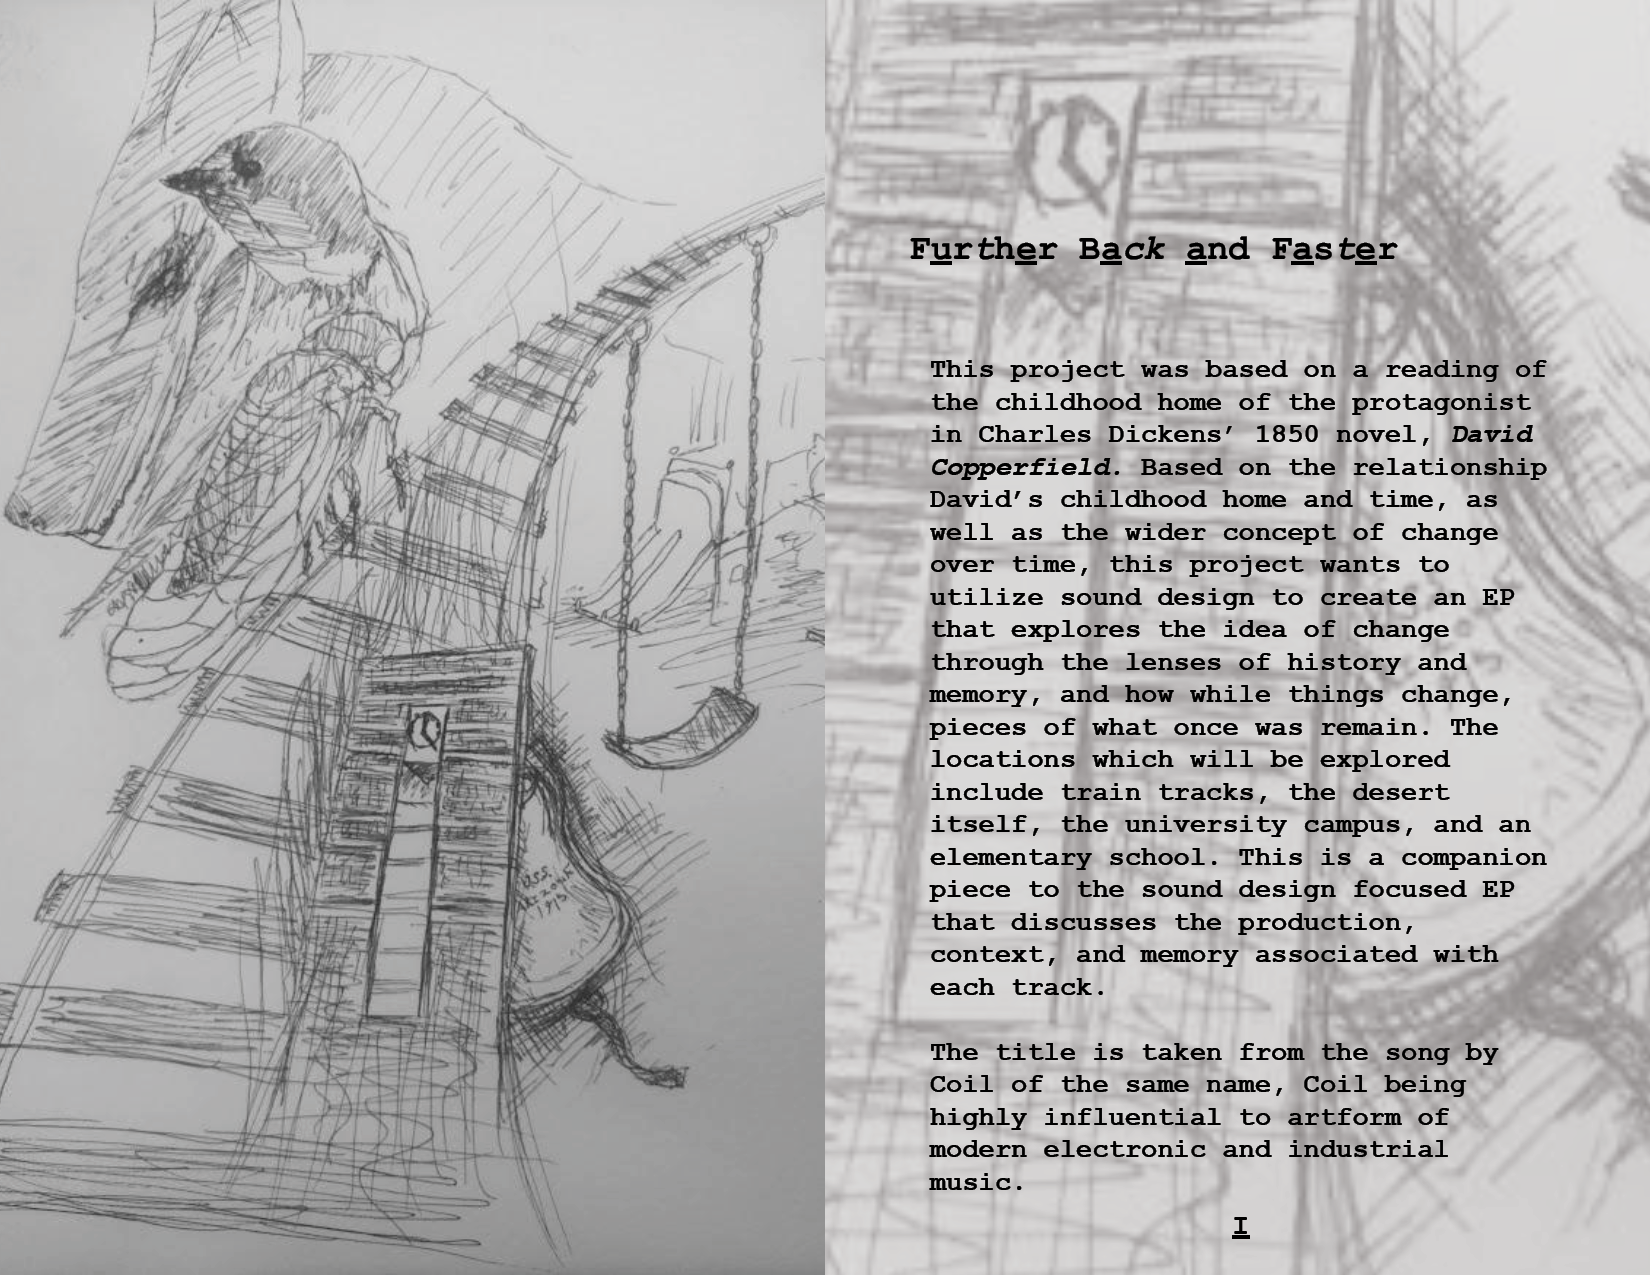 U.S.S.
Arizona
1915
Further Back and Faster
This project was based on a reading of
the childhood home of the protagonist
in Charles Dickens’ 1850 novel, David
Copperfield. Based on the relationship
David’s childhood home and time, as
well as the wider concept of change
over time, this project wants to
utilize sound design to create an EP
that explores the idea of change
through the lenses of history and
memory, and how while things change,
pieces of what once was remain. The
locations which will be explored
include train tracks, the desert
itself, the university campus, and an
elementary school. This is a companion
piece to the sound design focused EP
that discusses the production,
context, and memory associated with
each track.
The title is taken from the song by
Coil of the same name, Coil being
highly influential to artform of
modern electronic and industrial
music.
I